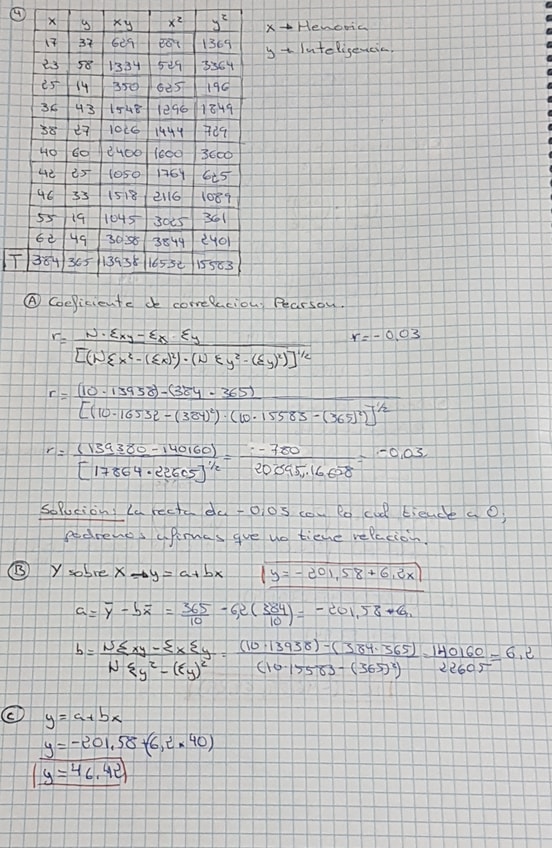 4
x y xy x² y²
17 37 629 289 1369
23 58 1334 529 3364
25 14 350 625 196
36 43 1548 1296 1849
38 27 1026 1444 729
40 60 2400 1600 3600
42 25 1050 1764 625
46 33 1518 2116 1089
55 19 1045 3025 361
62 49 3038 3844 2401
T 384 365 13938 16532 15583
x → Memoria
y → Inteligencia.
A Coeficiente de correlacion: Pearson.
r = N·Σxy - Σx · Σy / [(NΣx² - (Σx)²) · (NΣy² - (Σy)²)]^1/2 r = -0,03
r = (10 · 13938) - (384 · 365) / [(10·16532 - (384)²) · (10·15583 - (365)²)]^1/2
r = (139380 - 140160) / [17864 · 22605]^1/2 = -780 / 20095,16608 = -0,03
Solución: La recta da -0,03 con lo cual tiende a 0,
podremos afirmas que no tiene relación.
B Y sobre x → y = a + bx y = -201,58 + 6,2x
a = ȳ - bx̄ = 365/10 - 6,2 (384/10) = -201,58
b = NΣxy - Σx Σy / NΣy² - (Σy)² = (10·13938) - (384·365) / (10·15583 - (365)²) = 140160 / 22605 = 6,2
C y = a + bx
y = -201,58 + (6,2 × 40)
y = 46,42